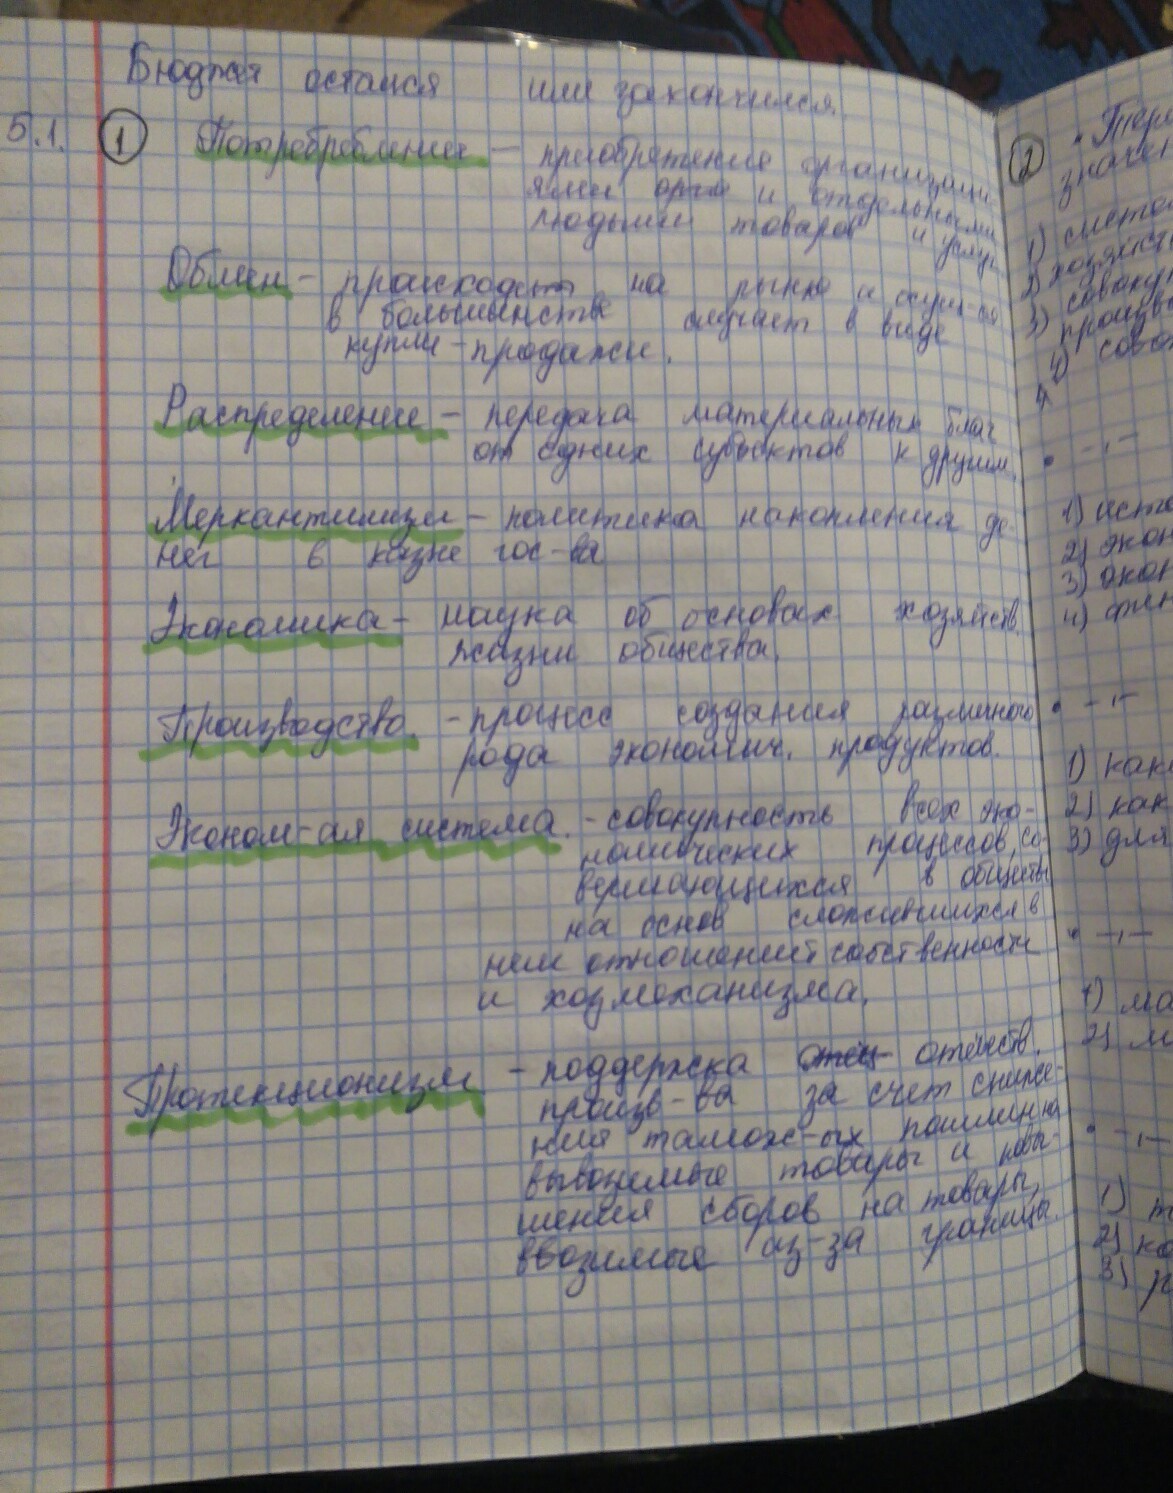 Бюджет остался или закончился.
5.1. 1 Потребребление - приобретение организаци
ями орган и отдельными
людьми товаров и услуг
Обмен - происходит на рынке и осущ-ся
в большинстве случает в виде
купли-продажи.
Распределение - передача материальных благ
от одних субъектов к другим.
Меркантилизм - политика накопления де-
нег в казне гос-ва
Экономика - наука об основах хозяйств.
жизни общества.
Производство - процесс создания различного
рода экономич. продуктов.
Эконом-ая система - совокупность всех эко-
номических процессов, со-
вершающихся в обществе
на основ сложившихся в
нем отношений собственности
и хозмеханизма.
Протекционизм - поддержка отеч отечеств.
произв-ва за счет сниже-
ния тамож-ых пошлин на
вывозимые товары и повы-
шения сборов на товары,
ввозимые из-за границы.
2
1)
2)
3)
4)
• -,,-
1) исто
2) экон
3) экон
4)
• -,,-
1) как
2) как
3) для
• -,,-
1) ма
2) м
• -,,-
1) т
2) ко
3) р